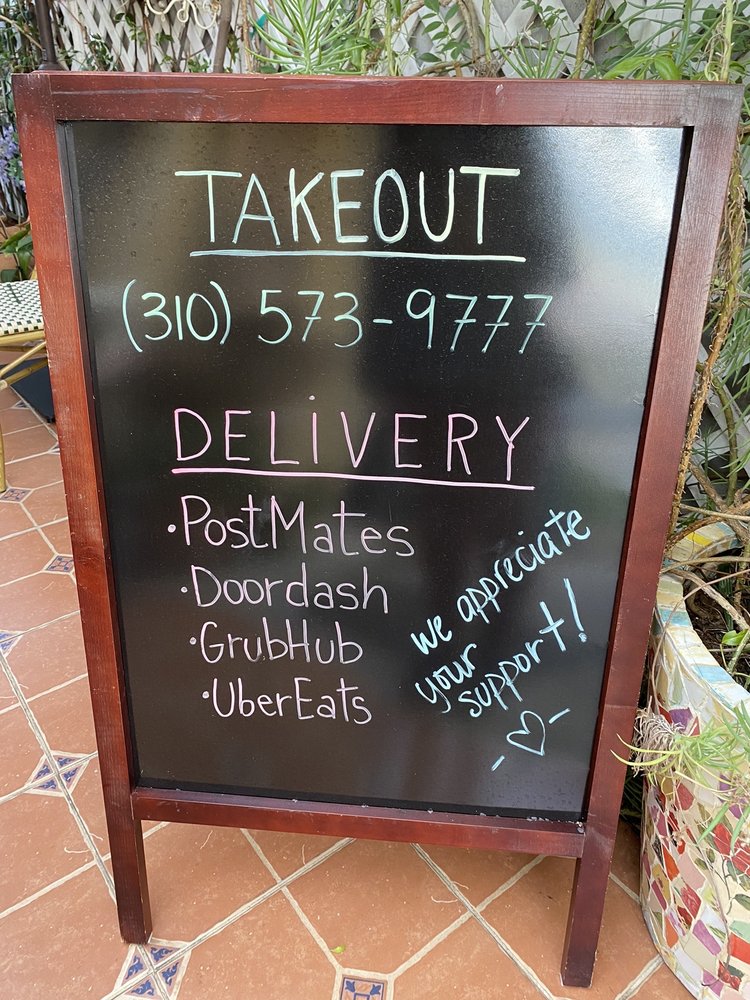 TAKEOUT
(310) 573-9777
DELIVERY
•PostMates
•Doordash
•GrubHub
•UberEats
we appreciate
your
support!